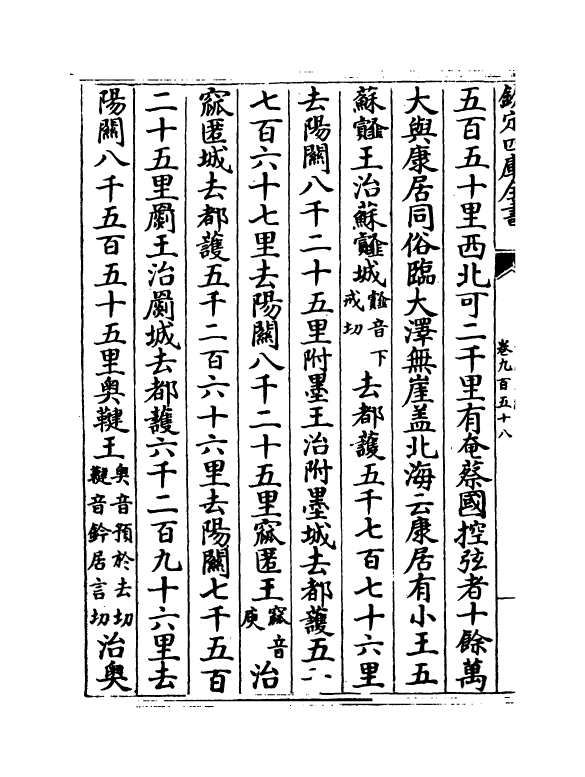 欽定四庫全書
卷九百五十八
五百五十里西北可二千里有奄蔡國控弦者十餘萬
大與康居同俗臨大澤無崖盖北海云康居有小王五
蘇䪥王治蘇䪥城䪥音下戒切去都護五千七百七十六里
去陽關八千二十五里附墨王治附墨城去都護五
七百六十七里去陽關八千二十五里窳匿王窳音庾治
窳匿城去都護五千二百六十六里去陽關七千五百
二十五里罽王治罽城去都護六千二百九十六里去
陽關八千五百五十五里奥鞬王奥音預於去切鞬音鈐居言切治奥